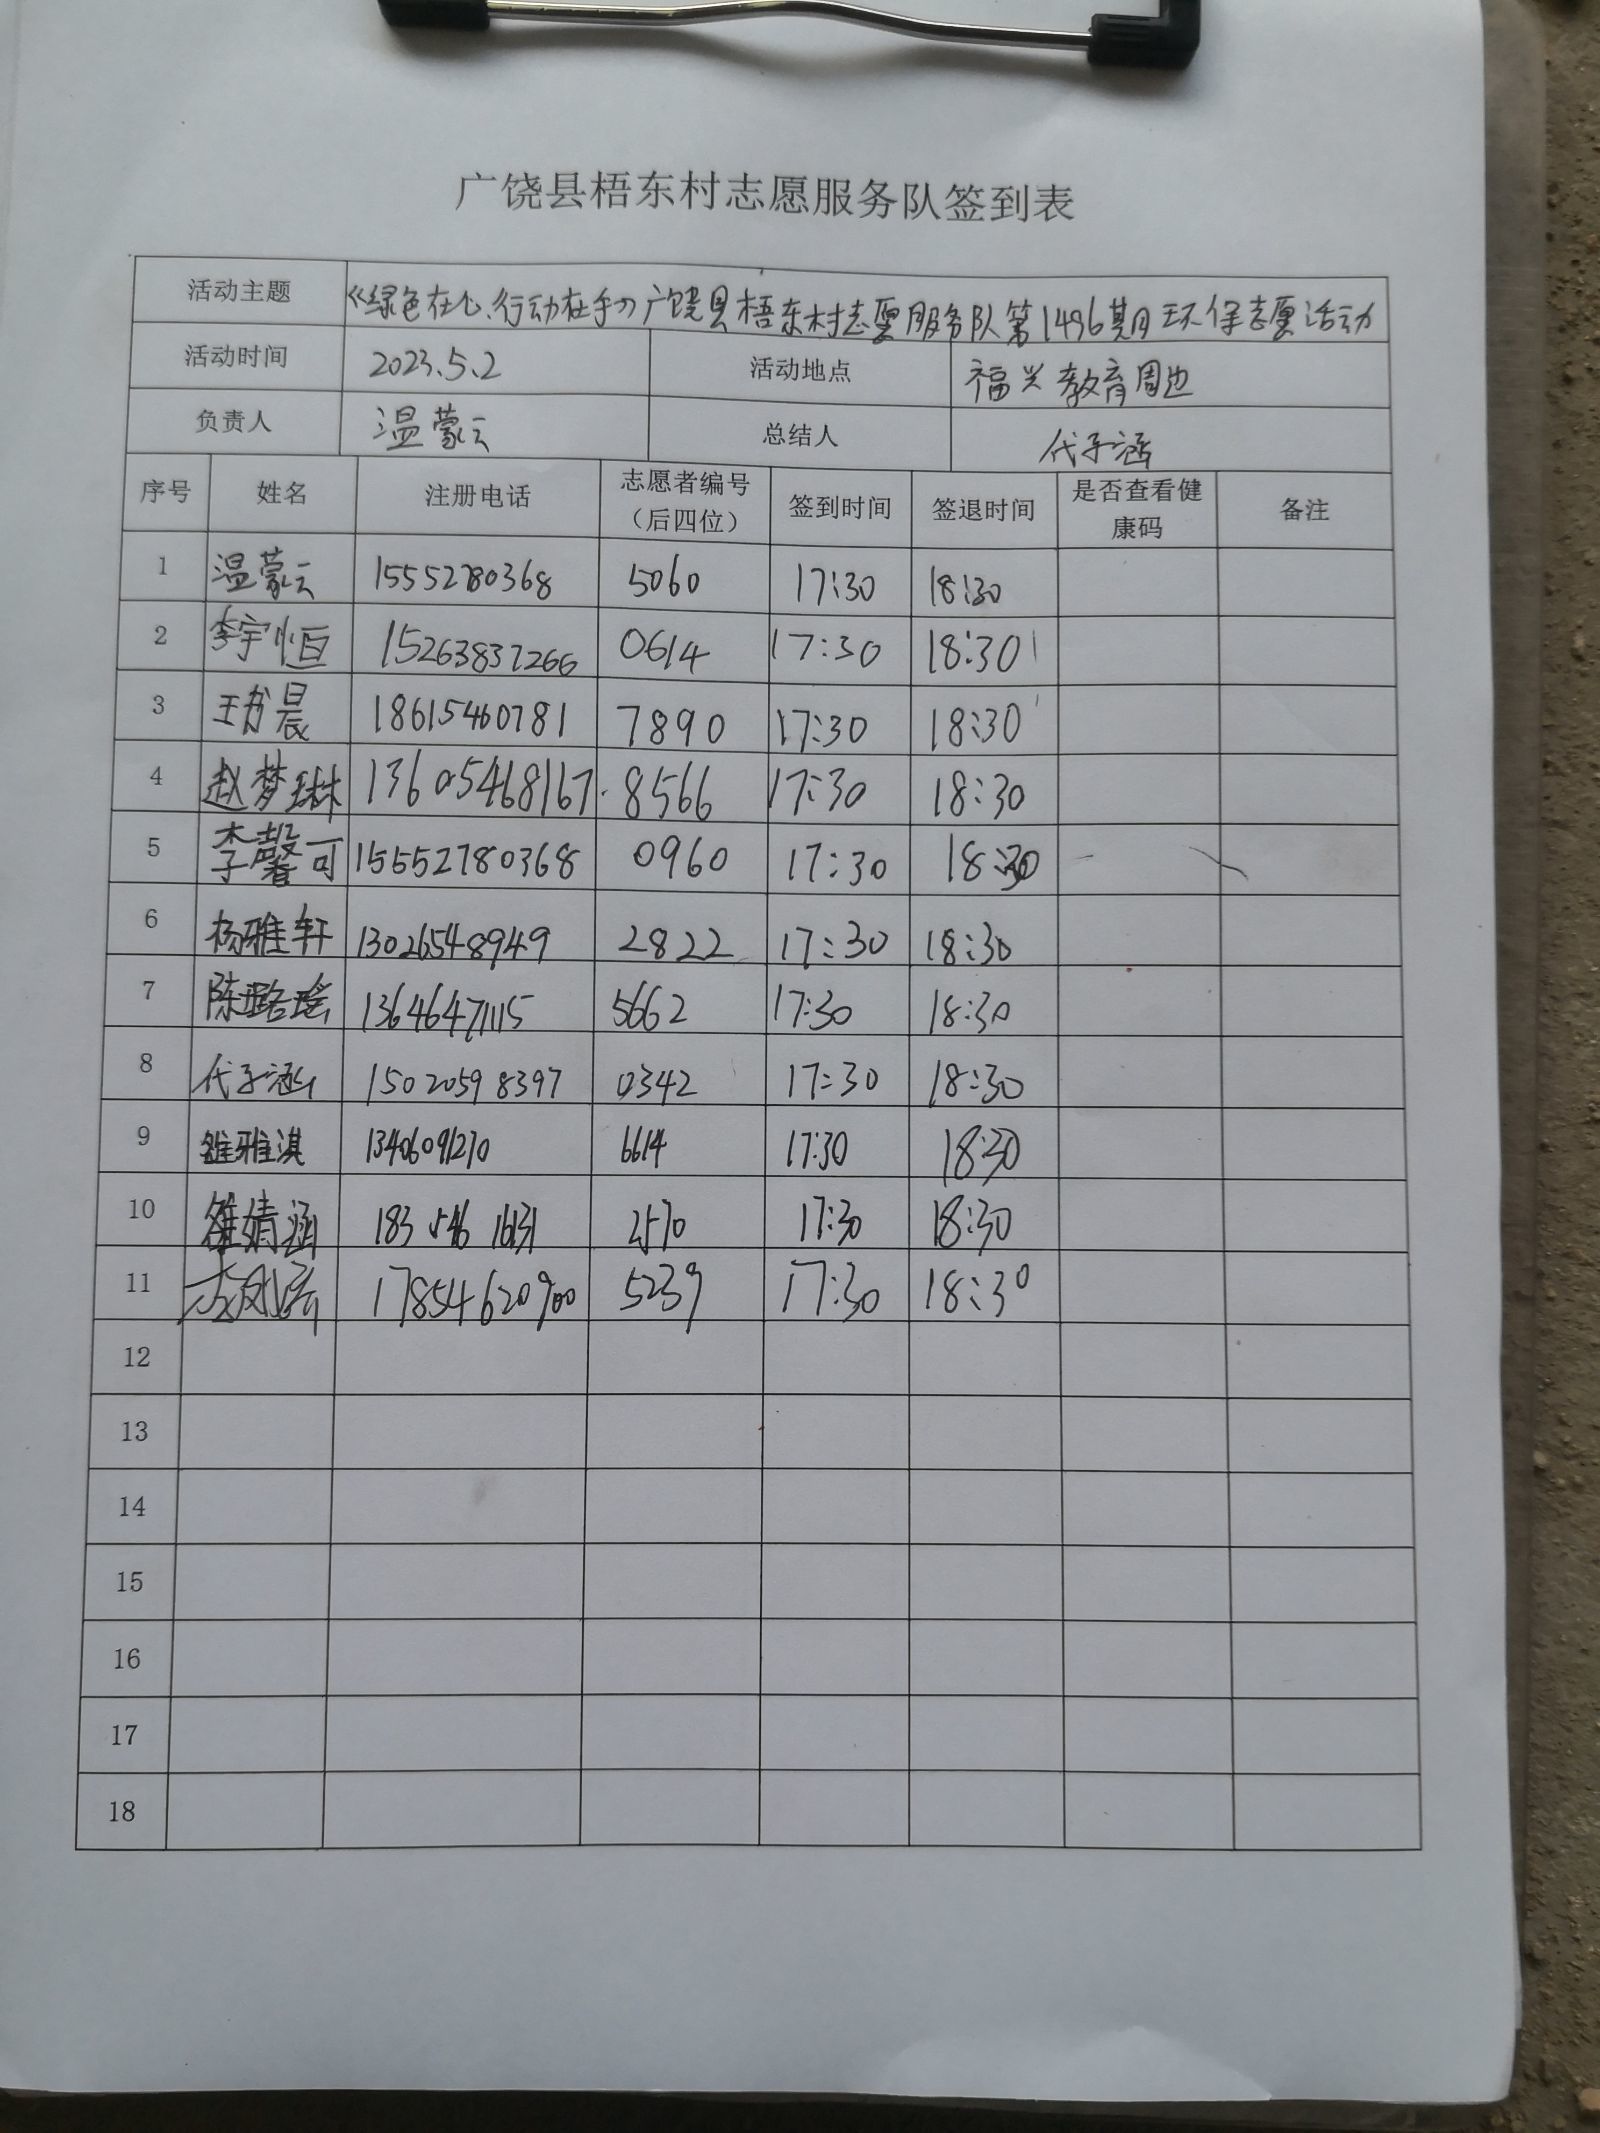 广饶县梧东村志愿服务队签到表
活动主题 《绿色在心、行动在手》广饶县梧东村志愿服务队第1496期环保志愿活动
活动时间 2023.5.2 活动地点 福兴教育周边
负责人 温蒙云 总结人 代子涵
序号 姓名 注册电话 志愿者编号（后四位） 签到时间 签退时间 是否查看健康码 备注
1 温蒙云 15552780368 5060 17:30 18:30
2 李宇恒 15263837266 0614 17:30 18:30
3 王书晨 18615460781 7890 17:30 18:30
4 赵梦琳 13605468167 8566 17:30 18:30
5 李馨可 15552780368 0960 17:30 18:30
6 杨雅轩 13026548949 2822 17:30 18:30
7 陈璐瑶 13646471115 5662 17:30 18:30
8 代子涵 15020598397 0342 17:30 18:30
9 雒雅淇 13406091270 6614 17:30 18:30
10 雒婧涵 18354616131 2570 17:30 18:30
11 17854620900 5239 17:30 18:30
12
13
14
15
16
17
18